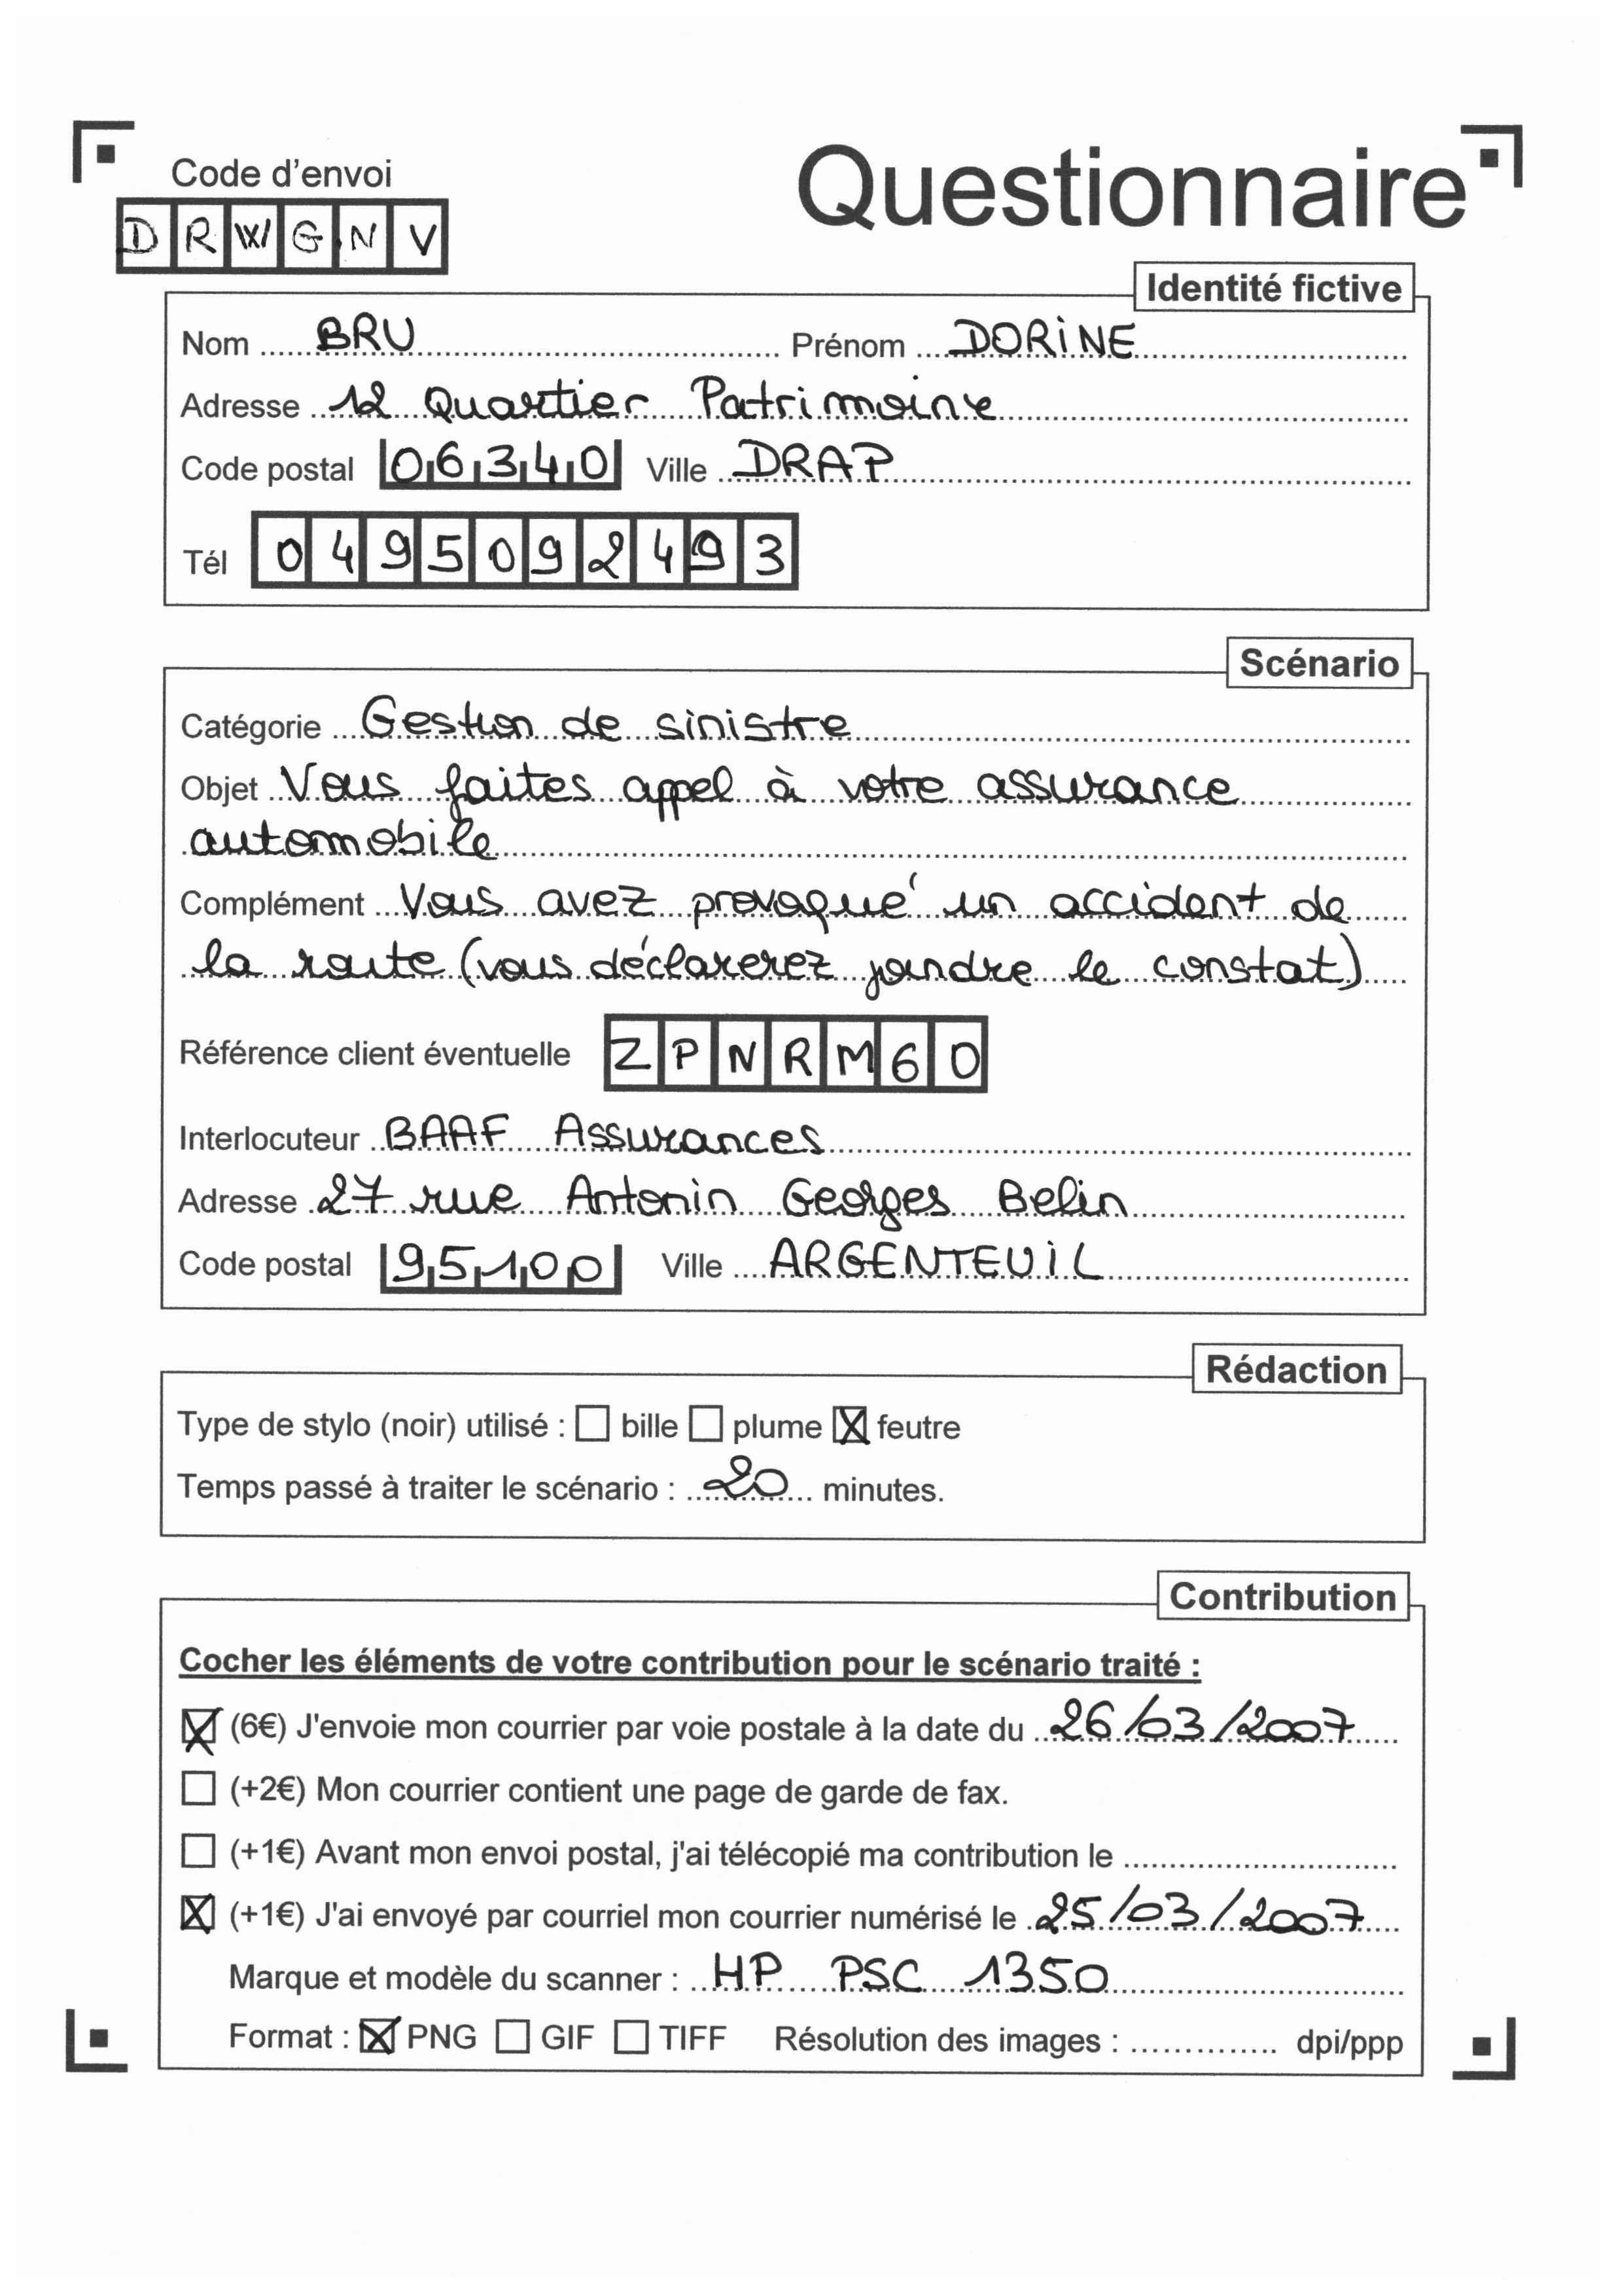 Code d'envoi
Questionnaire
D R W G N V
Identité fictive
Nom BRU Prénom DORINE
Adresse 12 Quartier Patrimoine
Code postal 06340 Ville DRAP
Tél 0495092493
Scénario
Catégorie Gestion de sinistre
Objet Vous faites appel à votre assurance
automobile
Complément Vous avez provoqué un accident de
la route (vous déclarerez joindre le constat)
Référence client éventuelle ZPNRM60
Interlocuteur BAAF Assurances
Adresse 27 rue Antonin Georges Belin
Code postal 95100 Ville ARGENTEUIL
Rédaction
Type de stylo (noir) utilisé : ☐ bille ☐ plume ☒ feutre
Temps passé à traiter le scénario : 20 minutes.
Contribution
Cocher les éléments de votre contribution pour le scénario traité :
☒ (6€) J'envoie mon courrier par voie postale à la date du 26/03/2007
☐ (+2€) Mon courrier contient une page de garde de fax.
☐ (+1€) Avant mon envoi postal, j'ai télécopié ma contribution le ..............................
☒ (+1€) J'ai envoyé par courriel mon courrier numérisé le 25/03/2007
Marque et modèle du scanner : HP PSC 1350
Format : ☒ PNG ☐ GIF ☐ TIFF Résolution des images : .............. dpi/ppp